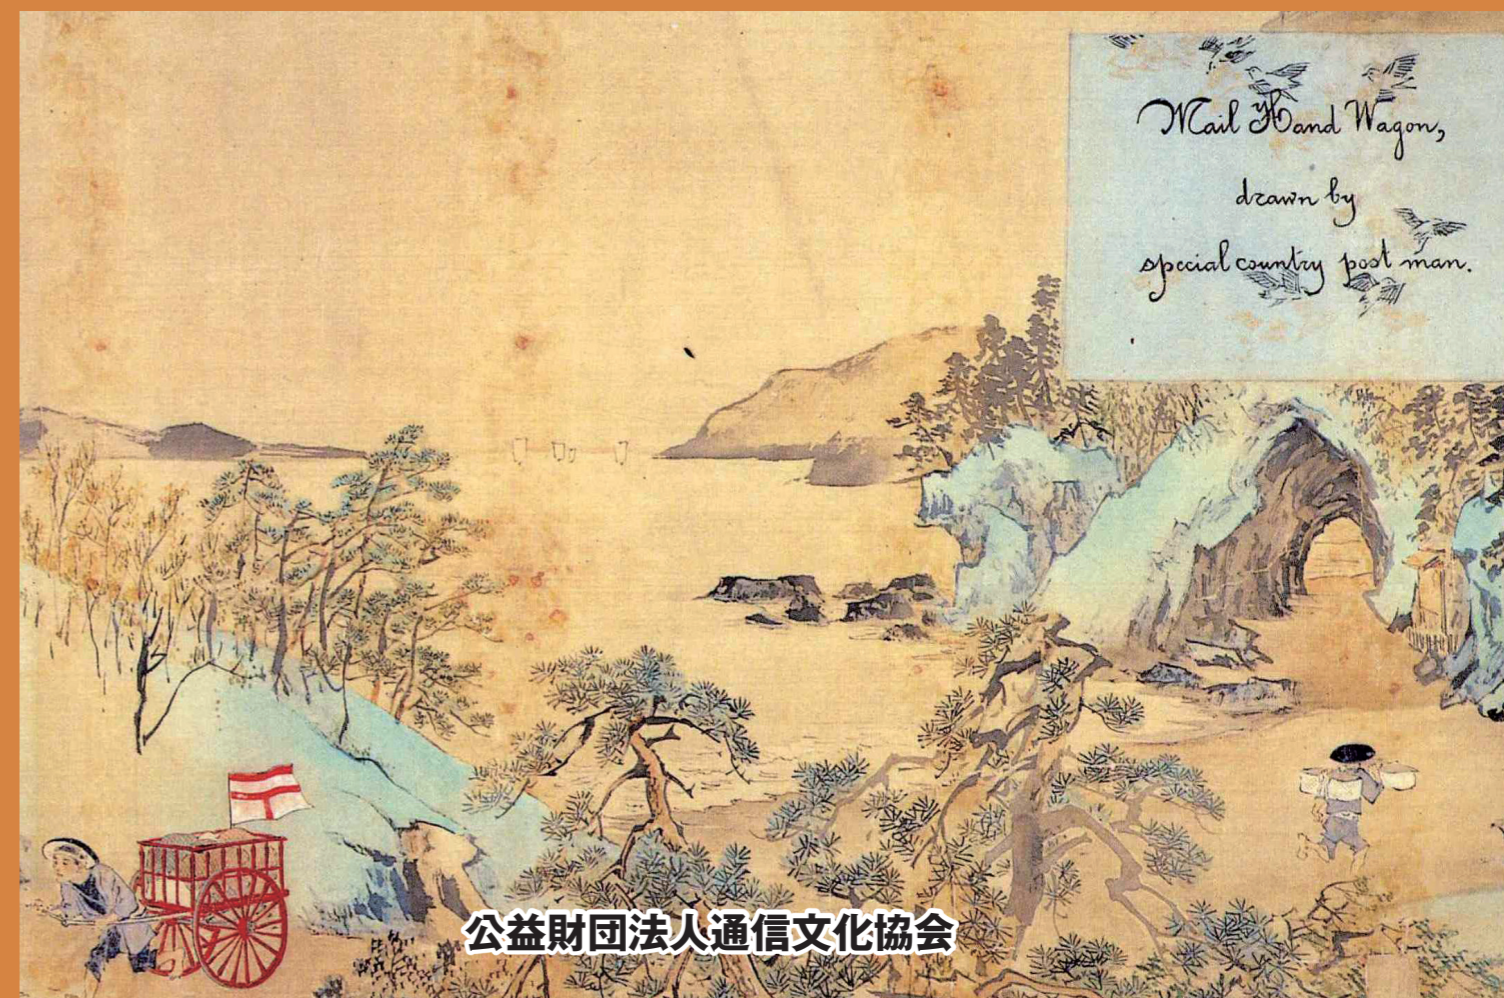 Mail Hand Wagon,
drawn by
special country post man.
公益財団法人通信文化協会